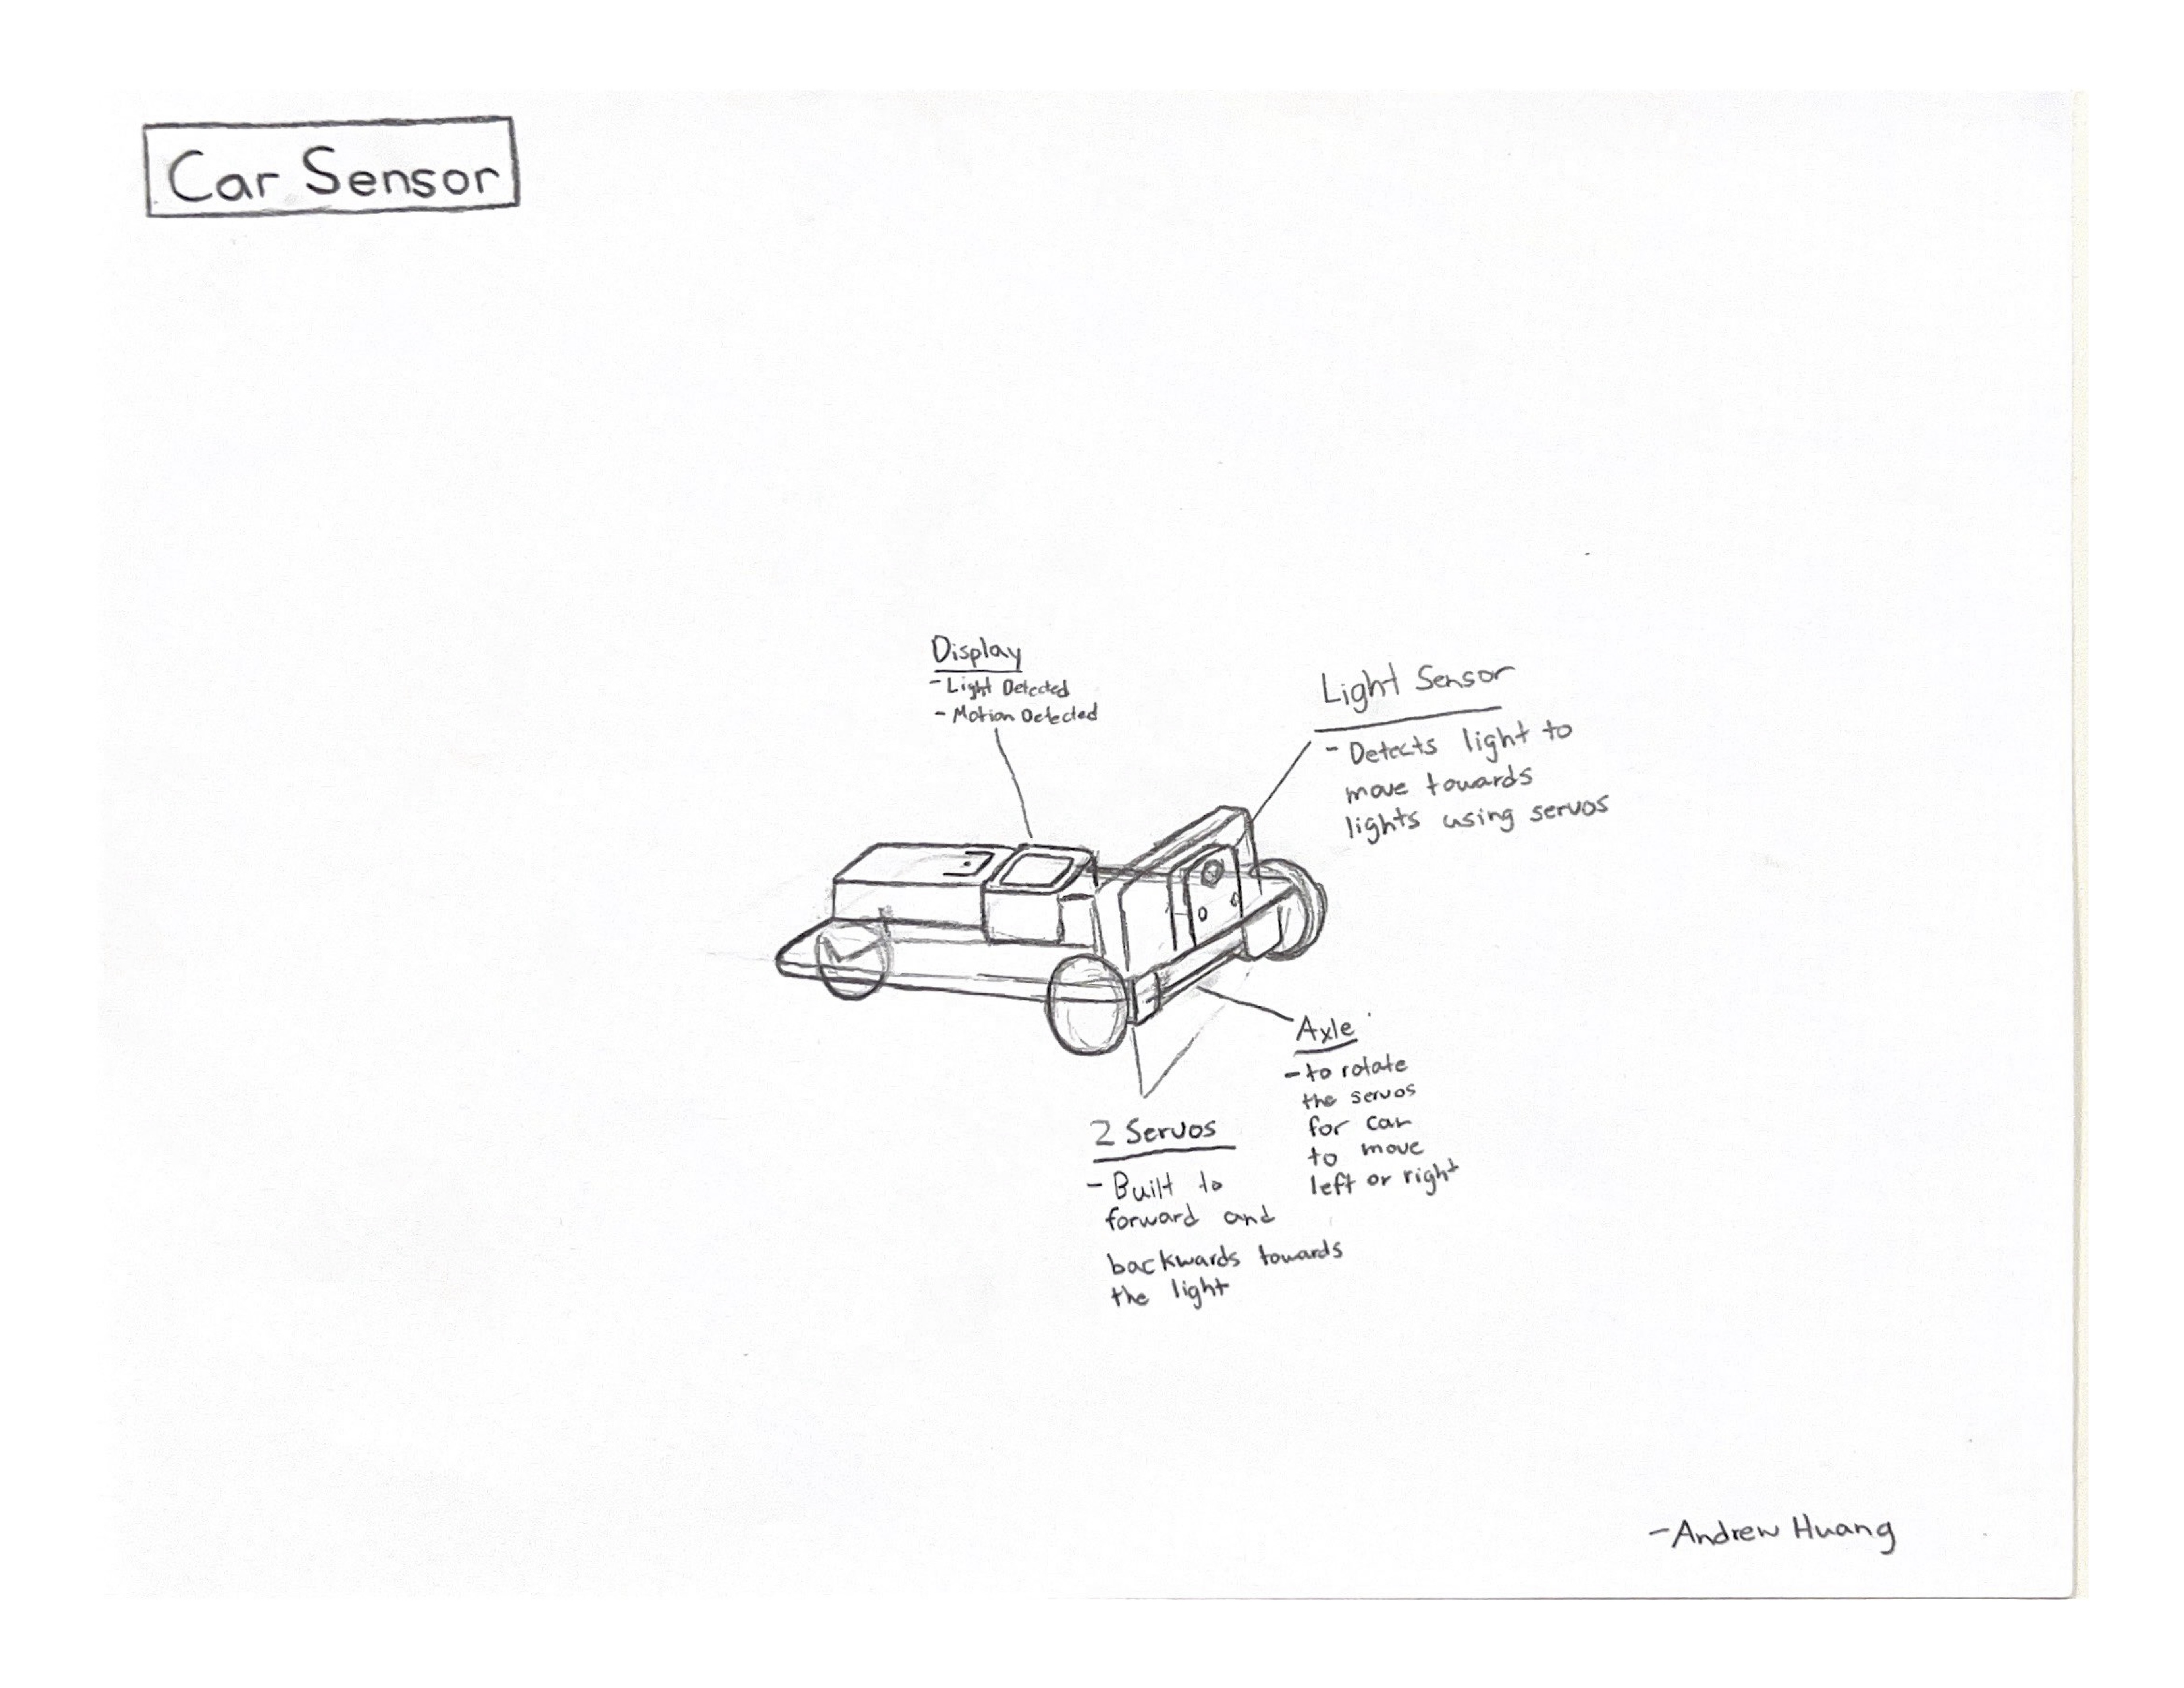 Car Sensor
Display
- Light Detected
- Motion Detected
Light Sensor
- Detects light to
move towards
lights using servos
Axle
- to rotate
the servos
for car
to move
left or right
2 Servos
- Built to
forward and
backwards towards
the light
- Andrew Huang